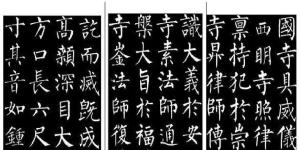 國寺具威儀
西明寺照律
稟持犯於崇
寺昇律師傳
識大義於安
寺素法師通
槃大旨於福
寺崟法師復
訖而滅既成
高顙深目大
方口長六尺
寸其音如鍾